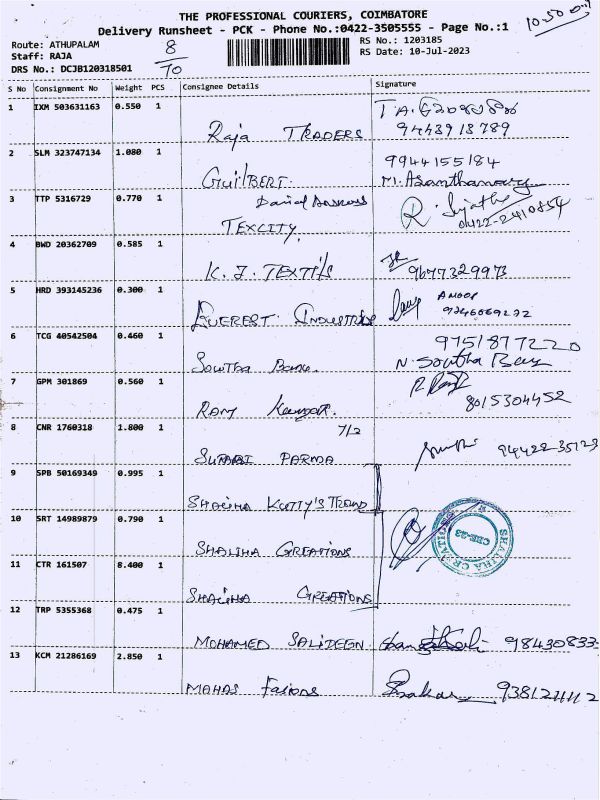 THE PROFESSIONAL COURIERS, COIMBATORE
Delivery Runsheet - PCK - Phone No.:0422-3505555 - Page No.:1
Route: ATHUPALAM
Staff: RAJA
DRS No.: DCJB120318501
8
TO
RS No.: 1203185
RS Date: 10-Jul-2023
S No Consignment No Weight PCS Consignee Details Signature
1 IXM 503631163 0.550 1 Raja TRADERS 9443913789
2 SLM 323747134 1.080 1 GUILBERT 9944155184
3 TTP 5316729 0.770 1 TEXCITY. R. Sujatha 0422-2410854
4 BWD 20362709 0.585 1 K. J. 9677329973
5 HRD 393145236 0.300 1 EVEREST INDUSTRIES ANOOP
6 TCG 40542504 0.460 1 9751877220
7 GPM 301869 0.560 1 8015304452
8 CNR 1760318 1.800 1 7/2 94422-35123
9 SPB 50169349 0.995 1 SHALIHA KUTTY'S TREND
10 SRT 14989879 0.790 1 SHALIHA CREATIONS
SHALIHA CREATIONS
CBE-23
11 CTR 161507 8.400 1 SHALIHA CREATIONS
12 TRP 5355368 0.475 1 MOHAMED SALITEEN 98430833
13 KCM 21286169 2.850 1